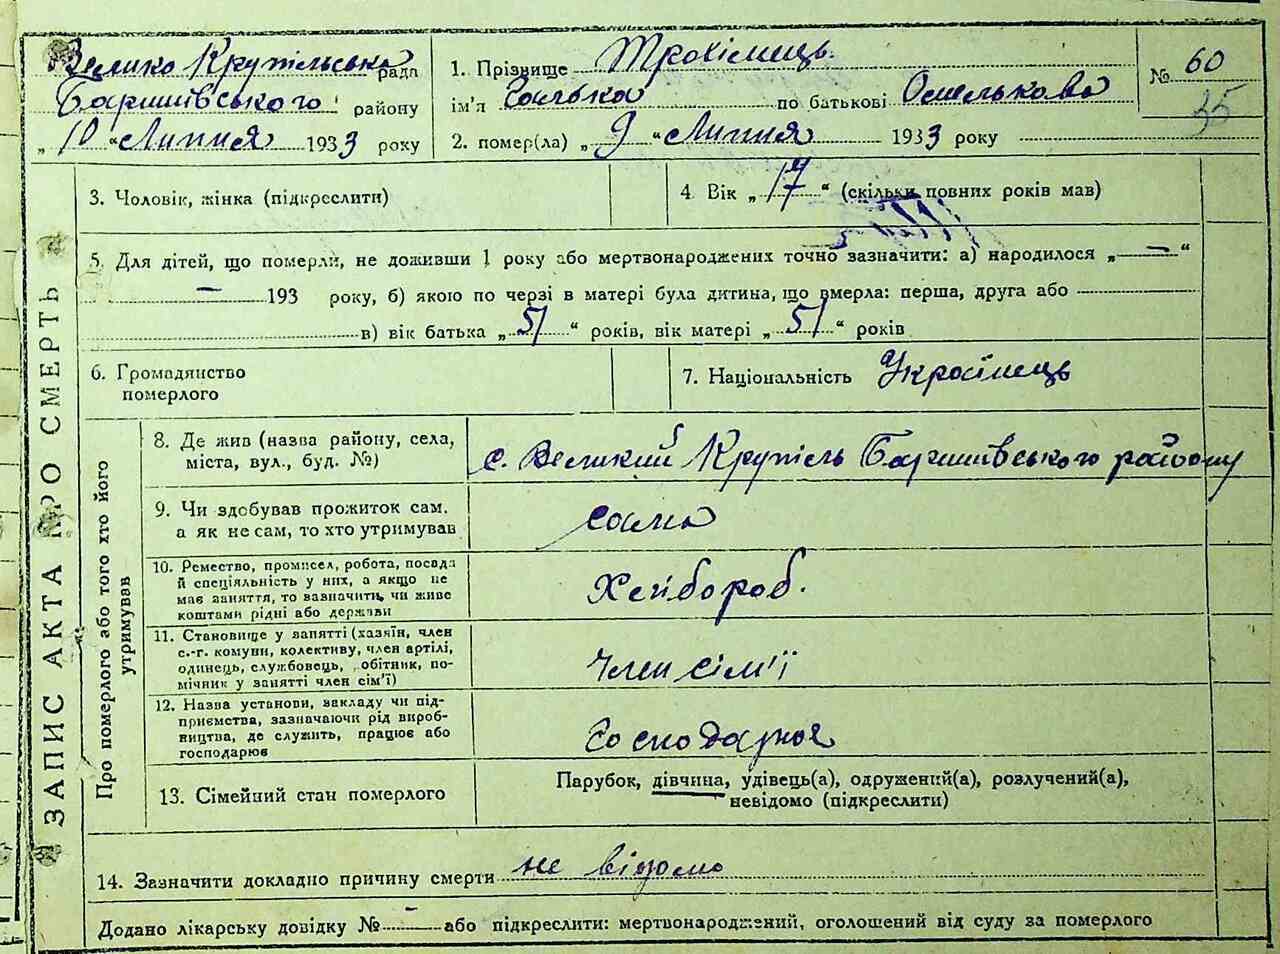 Велико Крупільська рада
Баришівського району
„ 10 “ Липня 1933 року
1. Прізвище Трохімець
ім'я Галька по батькові Омелькова
2. помер(ла) „ 9 “ Липня 1933 року
№ 60
35
ЗАПИС АКТА ПРО СМЕРТЬ
3. Чоловік, жінка (підкреслити)
4. Вік „ 17 “ (скільки повних років мав)
5. Для дітей, що померли, не доживши 1 року або мертвонароджених точно зазначити: а) народилося „ — “
— 193 року, б) якою по черзі в матері була дитина, що вмерла: перша, друга або
в) вік батька „ 51 “ років, вік матері „ 51 “ років
6. Громадянство
померлого
7. Національність Украімець
Про померлого або того хто його
утримував
8. Де жив (назва району, села,
міста, вул., буд. №)
с. Великий Крупіль Баришівського району
9. Чи здобував прожиток сам.
а як не сам, то хто утримував
сама
10. Ремество, промисел, робота, посада
й спеціяльність у них, а якщо не
має заняття, то зазначити, чи живе
коштами рідні або держави
Хлібороб.
11. Становище у занятті (хазяїн, член
с.-г. комуни, колективу, член артілі,
одинець, службовець, робітник, по-
мічник у занятті член сім'ї)
член сім'ї
12. Назва установи, закладу чи під-
приємства, зазначаючи рід вироб-
ництва, де служить, працює або
господарює
13. Сімейний стан померлого
Парубок, дівчина, удівець(а), одружений(а), розлучений(а),
невідомо (підкреслити)
14. Зазначити докладно причину смерти не відомо
Додано лікарську довідку № — або підкреслити: мертвонароджений, оголошений від суду за померлого